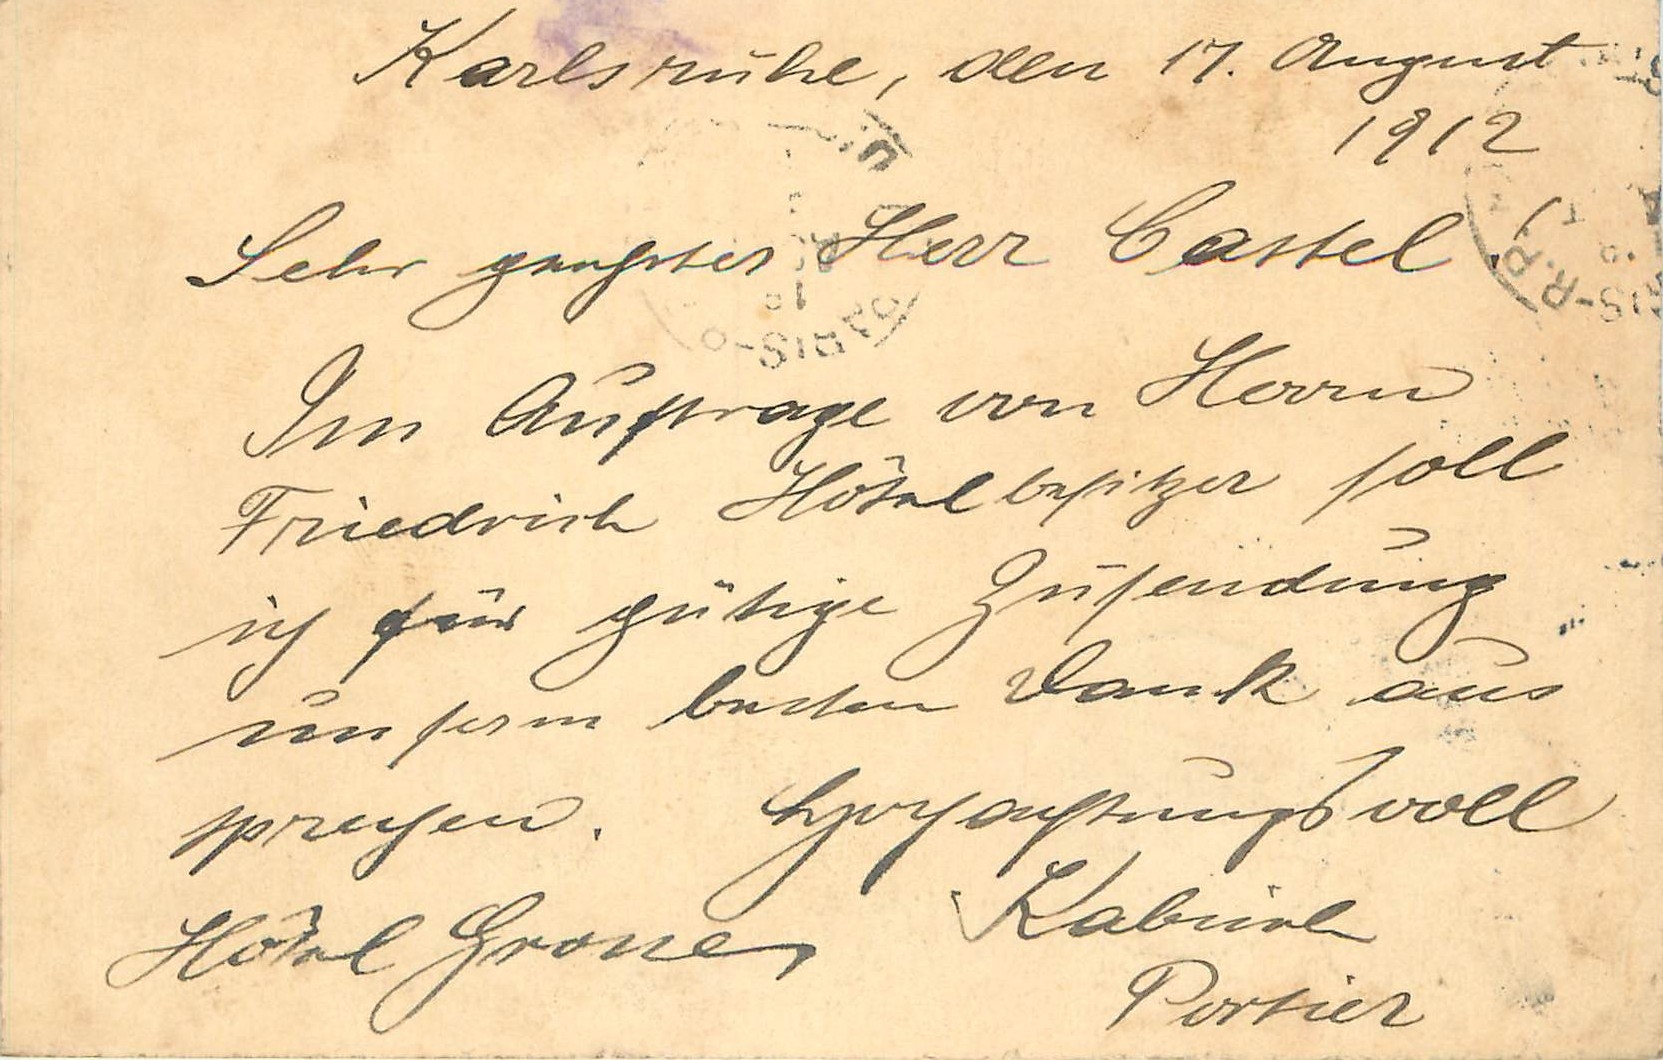 Karlsruhe, den 17. August
1912
Sehr geehrter Herr Castel!
Im Auftrage von Herrn
Friedrich Hôtelbesitzer soll
ich für gütige Zusendung
unsern besten Dank aus
sprechen. Hochachtungsvoll
Hôtel Grosse,
Portier